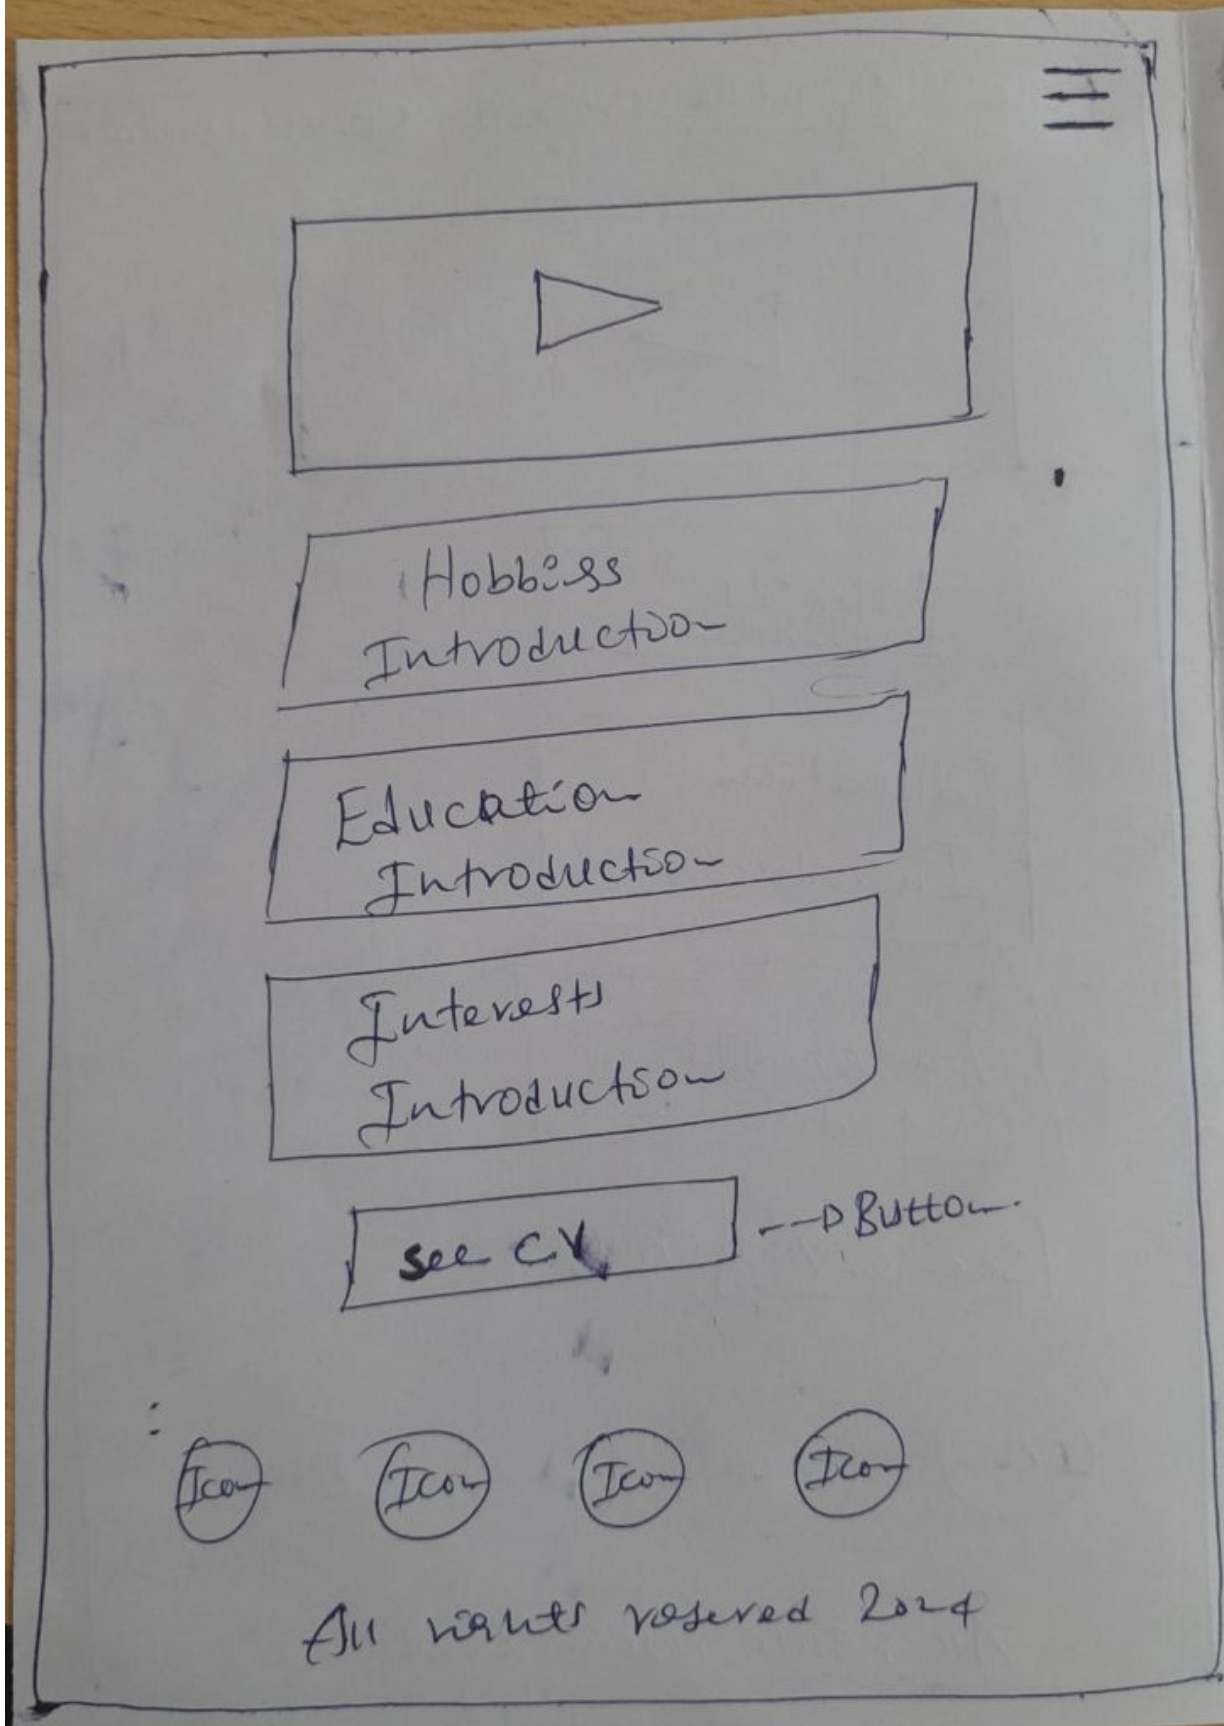 Hobbiss
Introduction
Education
Introduction
Interests
Introduction
see CV
Button.
Icon Icon Icon Icon
All rights reserved 2024